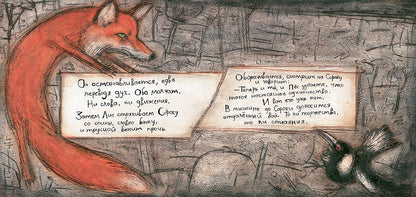 Он останавливается, едва
переводя дух. Оба молчат.
Ни слова, ни движения.
Затем Лис стряхивает Сороку
со спины, словно блоху,
и трусцой бежит прочь.
Оборачивается, смотрит на Сороку
и говорит:
— Теперь и ты, и Пёс узнаете, что
такое настоящее одиночество.
И вот его уже нет.
В тишине до Сороки доносится
отдалённый вой. То ли торжества,
то ли отчаяния.